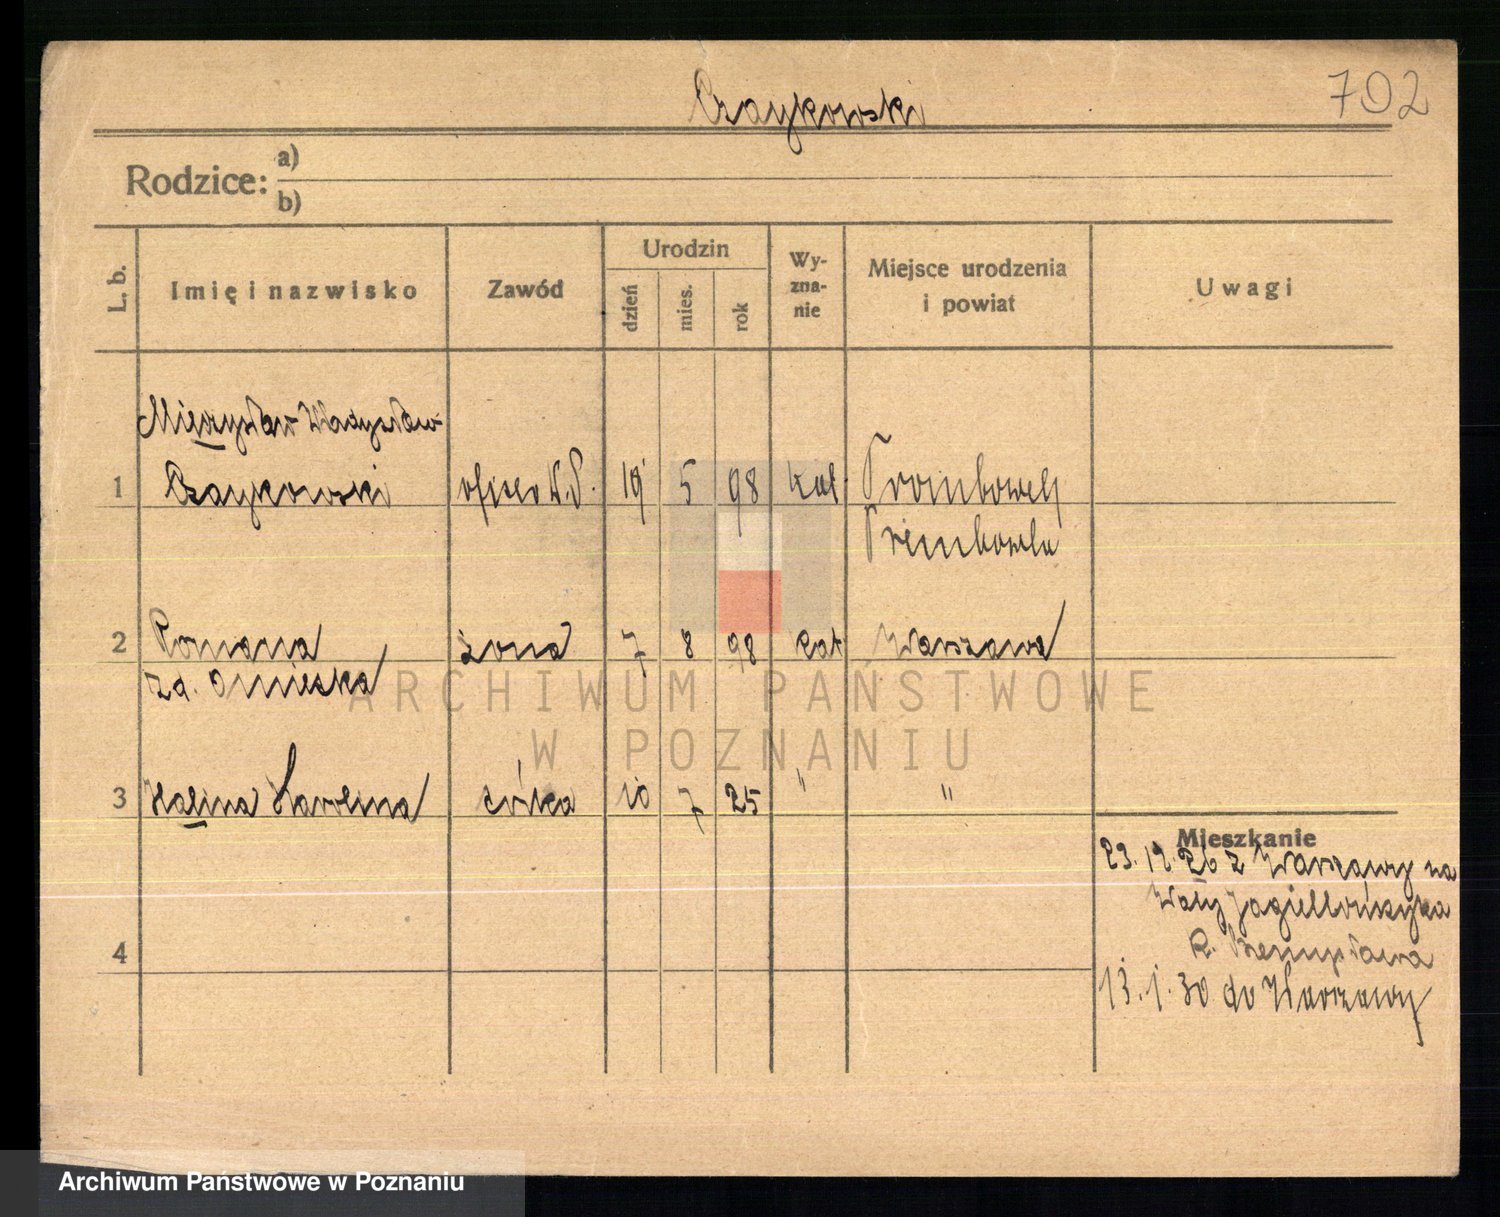 Czaykowski
702
Rodzice: a)
b)
L. b.
Imię i nazwisko
Zawód
Urodzin
dzień
mies.
rok
Wy-
zna-
nie
Miejsce urodzenia
i powiat
Uwagi
Mieczysław Władysław
1 Czaykowski oficer W.P. 19 5 98 kat.
Trembowla
2 Romana żona 7 8 98 kat Warszawa
za.
3 Halina Karolina córka 10 7 25 " "
Mieszkanie
23. 12. 26 z Warszawy na
Wały Jagiellończyka
K. Przemysława
4
13. 1. 30 do Warszawy
ARCHIWUM PAŃSTWOWE
W POZNANIU
Archiwum Państwowe w Poznaniu